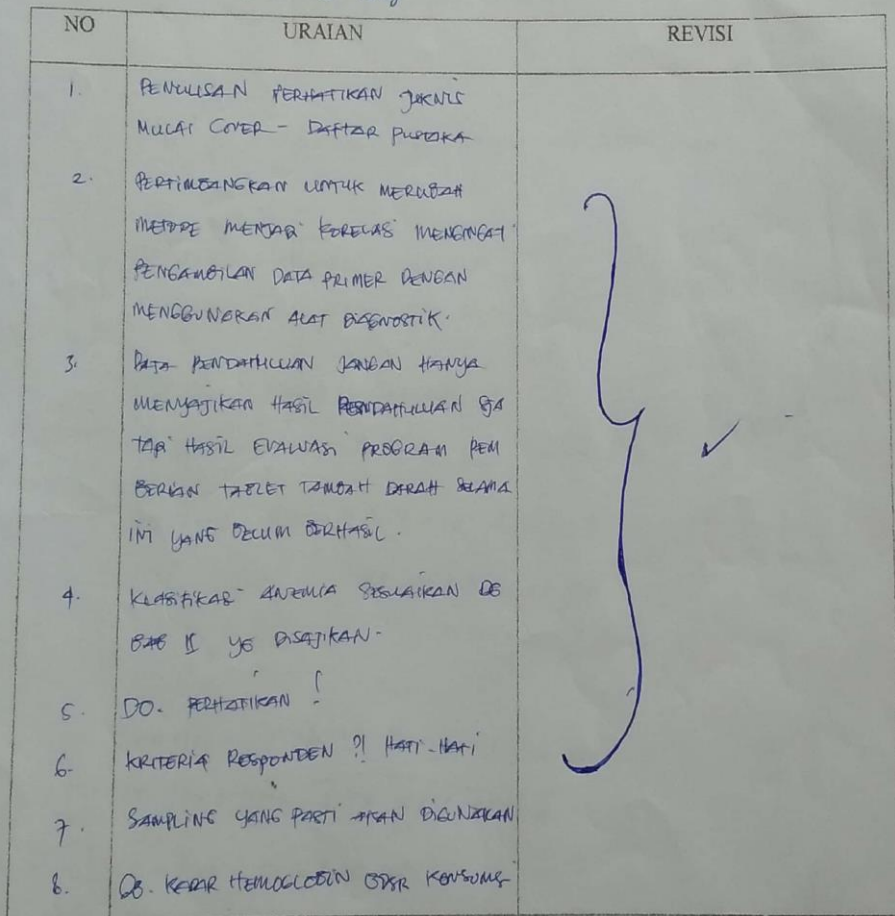 NO URAIAN REVISI
1. PENULISAN PERHATIKAN JUKNIS
MULAI COVER - DAFTAR PUSTAKA
2. PERTIMBANGKAN UNTUK MERUBAH
METODE MENJADI KORELASI MENGINGAT
PENGAMBILAN DATA PRIMER DENGAN
MENGGUNAKAN ALAT DIAGNOSTIK.
3. DATA PENDAHULUAN JANGAN HANYA
MENYAJIKAN HASIL PENDAHULUAN SJA
TAPI HASIL EVALUASI PROGRAM PEM
BERIAN TABLET TAMBAH DARAH SELAMA
INI YANG BELUM BERHASIL.
4. KLASIFIKASI ANEMIA SESUAIKAN DG
BAB II YG DISAJIKAN-
5. DO. PERHATIKAN !
6. KRITERIA RESPONDEN ?! HATI-HATI
7. SAMPLING YANG PASTI AKAN DIGUNAKAN
8. KADAR HEMOGLOBIN KONSUMSI